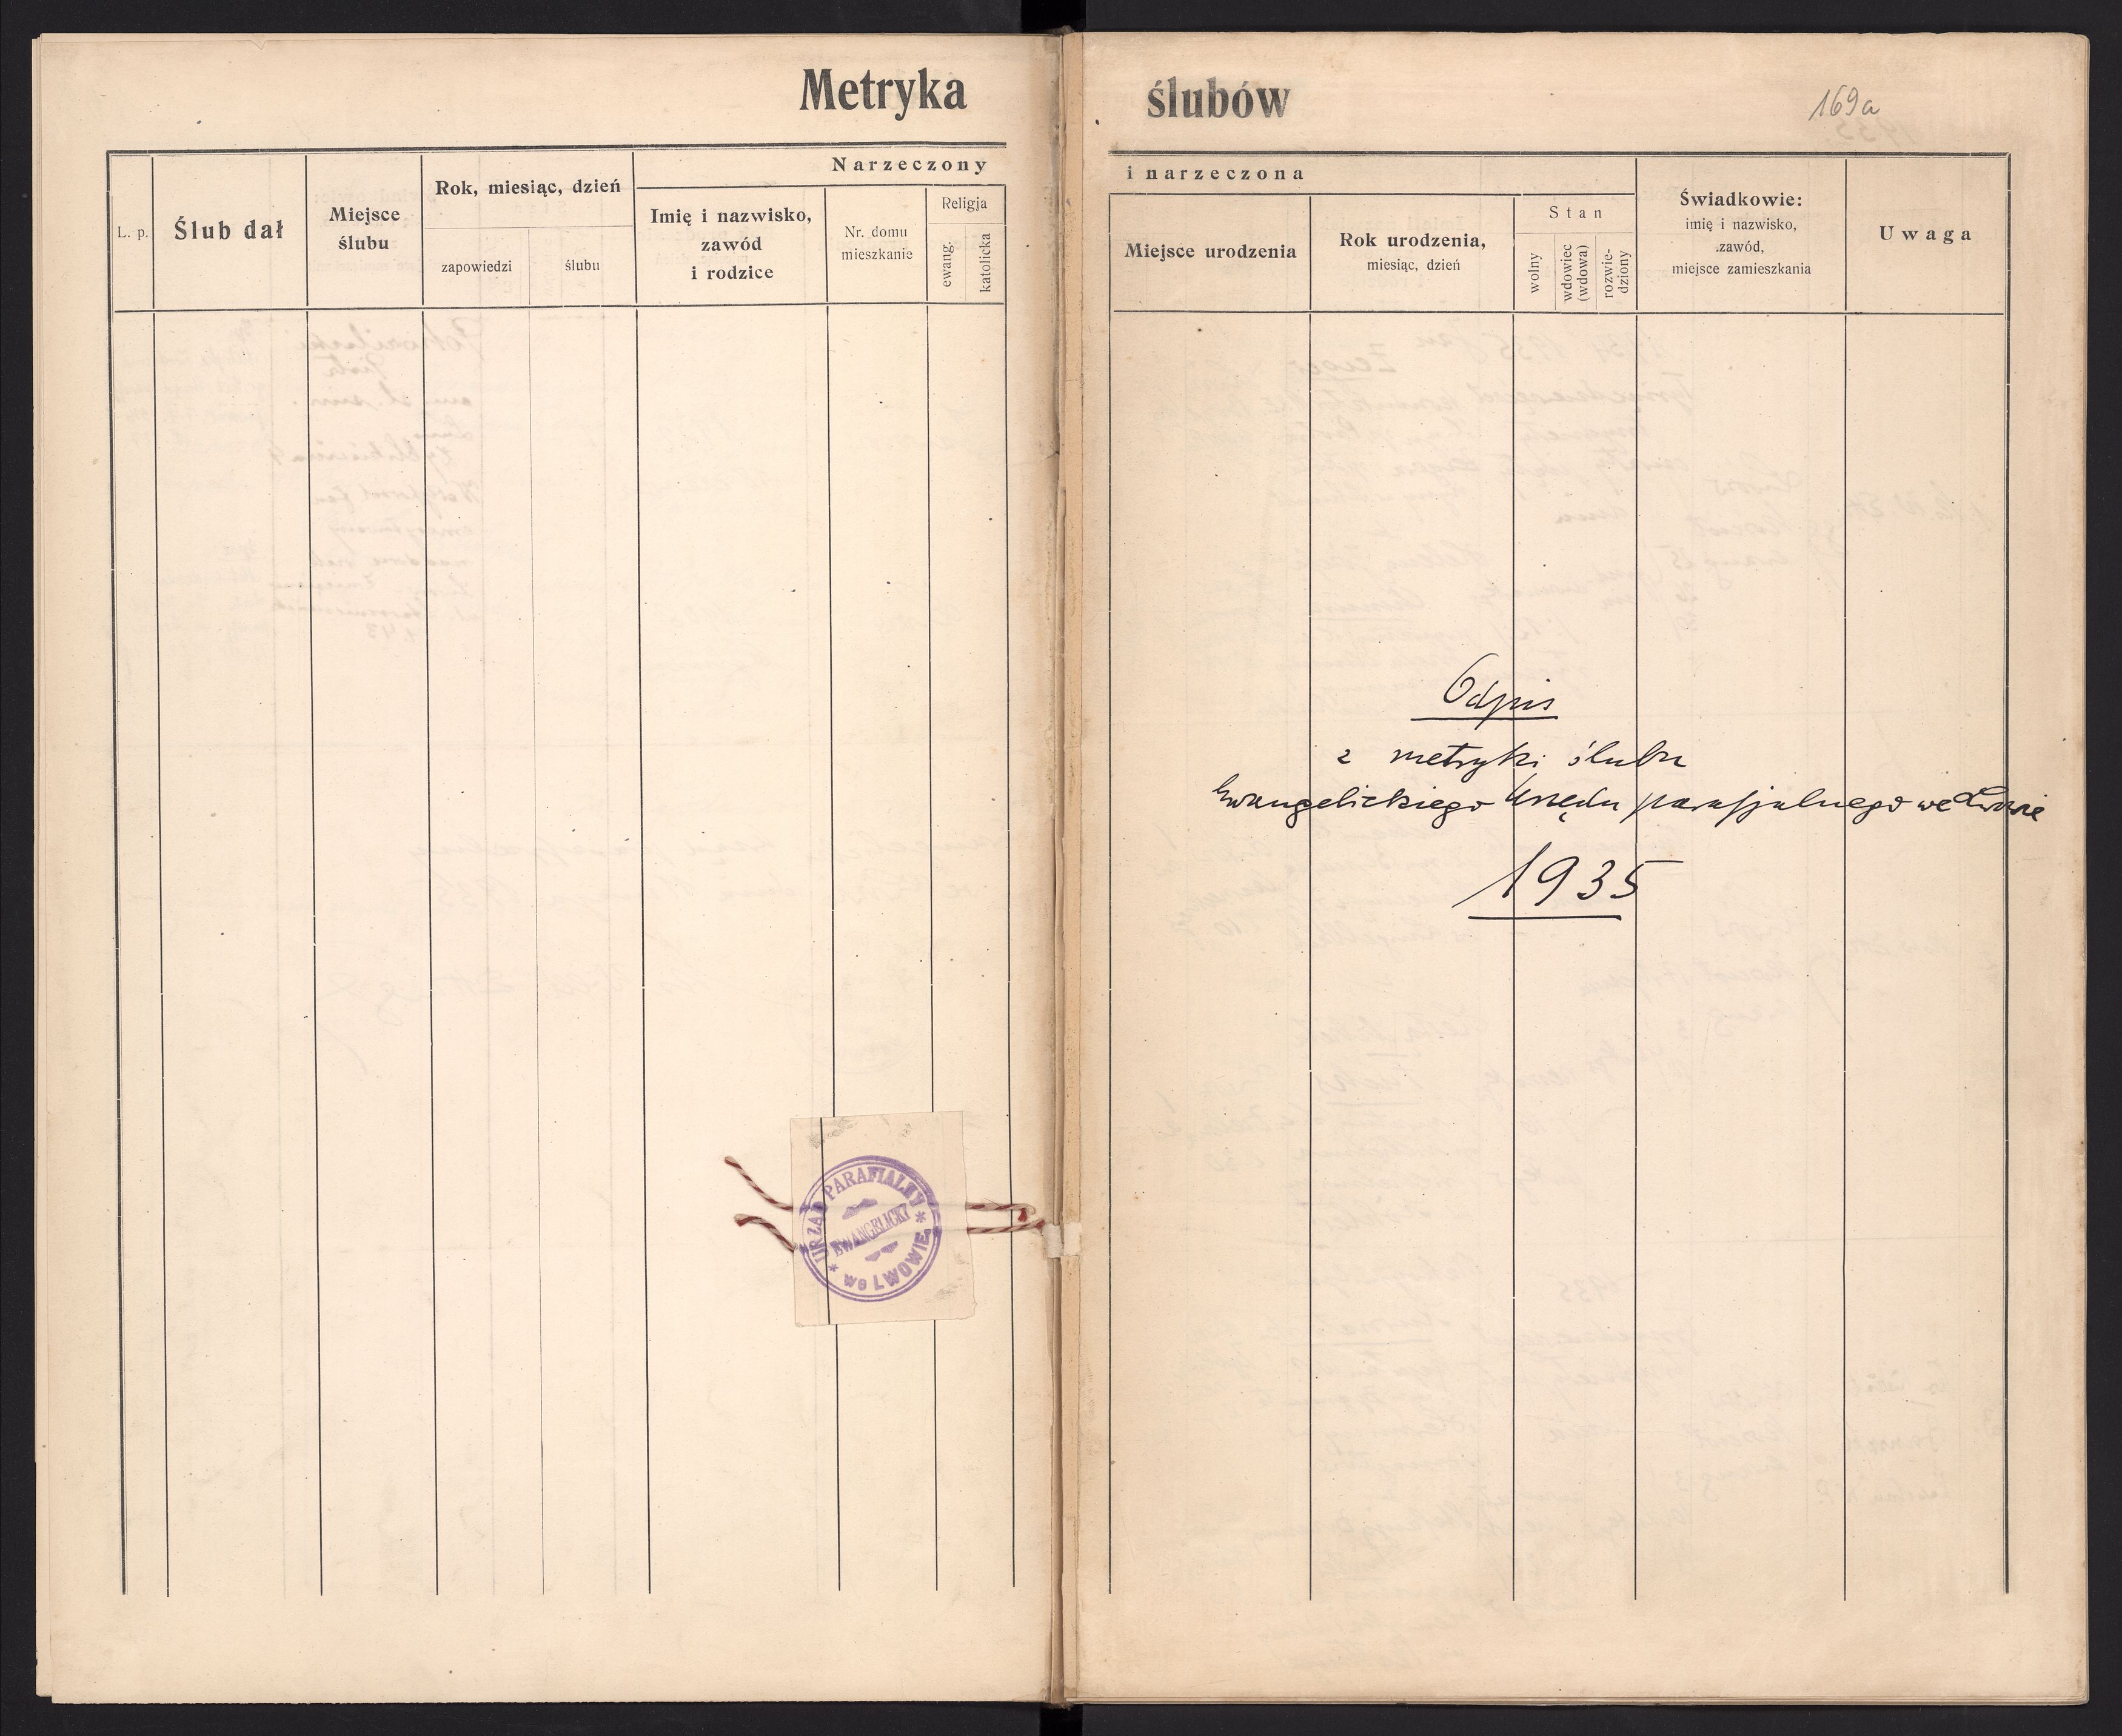 Metryka
L. p.
Ślub dał
Miejsce
ślubu
Rok, miesiąc, dzień
zapowiedzi
ślubu
Narzeczony
Imię i nazwisko,
zawód
i rodzice
Nr. domu
mieszkanie
Religja
ewang.
katolicka
URZĄD PARAFIALNY
EWANGELICKI
* we LWOWIE *
ślubów
169a
i narzeczona
Miejsce urodzenia
Rok urodzenia,
miesiąc, dzień
Stan
wolny
wdowiec
(wdowa)
rozwie-
dziony
Świadkowie:
imię i nazwisko,
zawód,
miejsce zamieszkania
Uwaga
Odpis
z metryki ślubu
Ewangelickiego Urzędu parafjalnego we Lwowie
1935